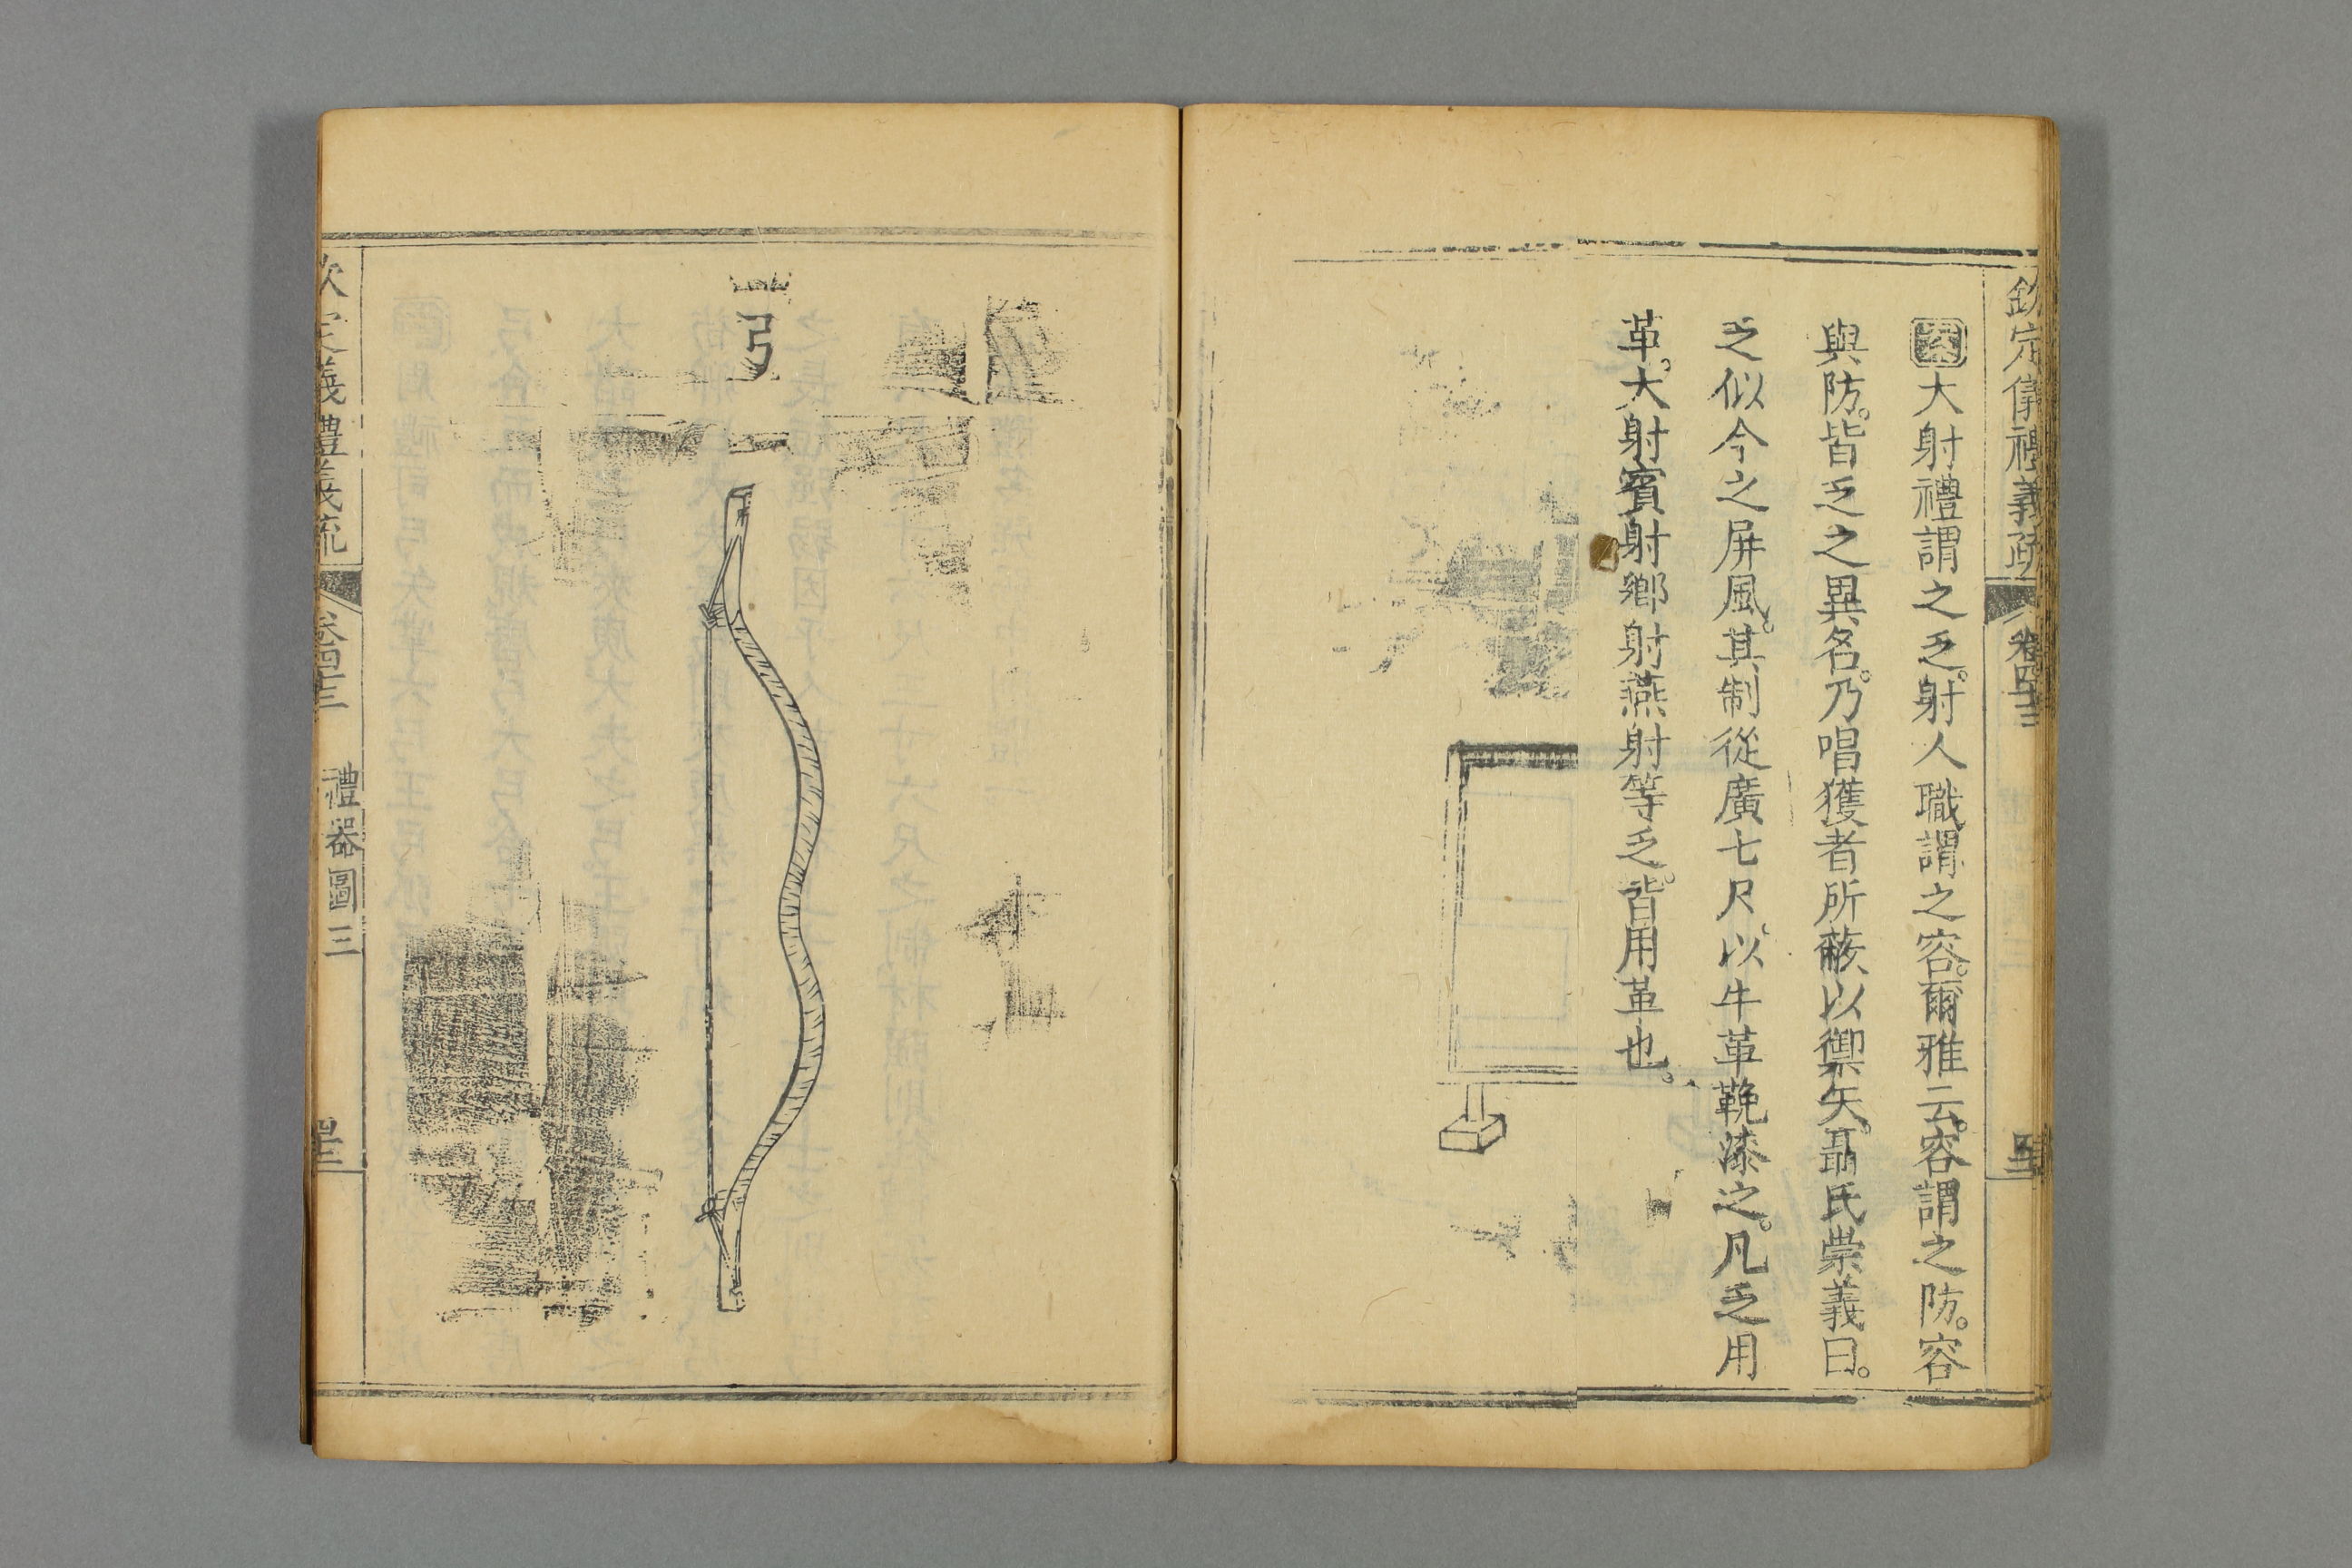 欽定儀禮義疏 卷四十三
大射禮謂之乏。射人職謂之容。爾雅云。容謂之防。容
與防。皆乏之異名。乃唱獲者所蔽以禦矢。聶氏崇義曰。
乏似今之屏風。其制從廣七尺。以牛革鞔漆之。凡乏用
革。大射賓射鄉射燕射等乏。皆用革也。
弓
欽定儀禮義疏 卷四十三 禮器圖三